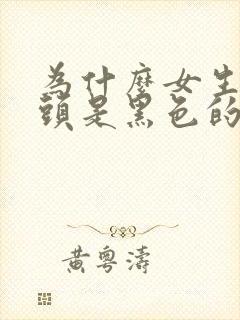 為什麼女生
頭是黑色的
黃粵濤